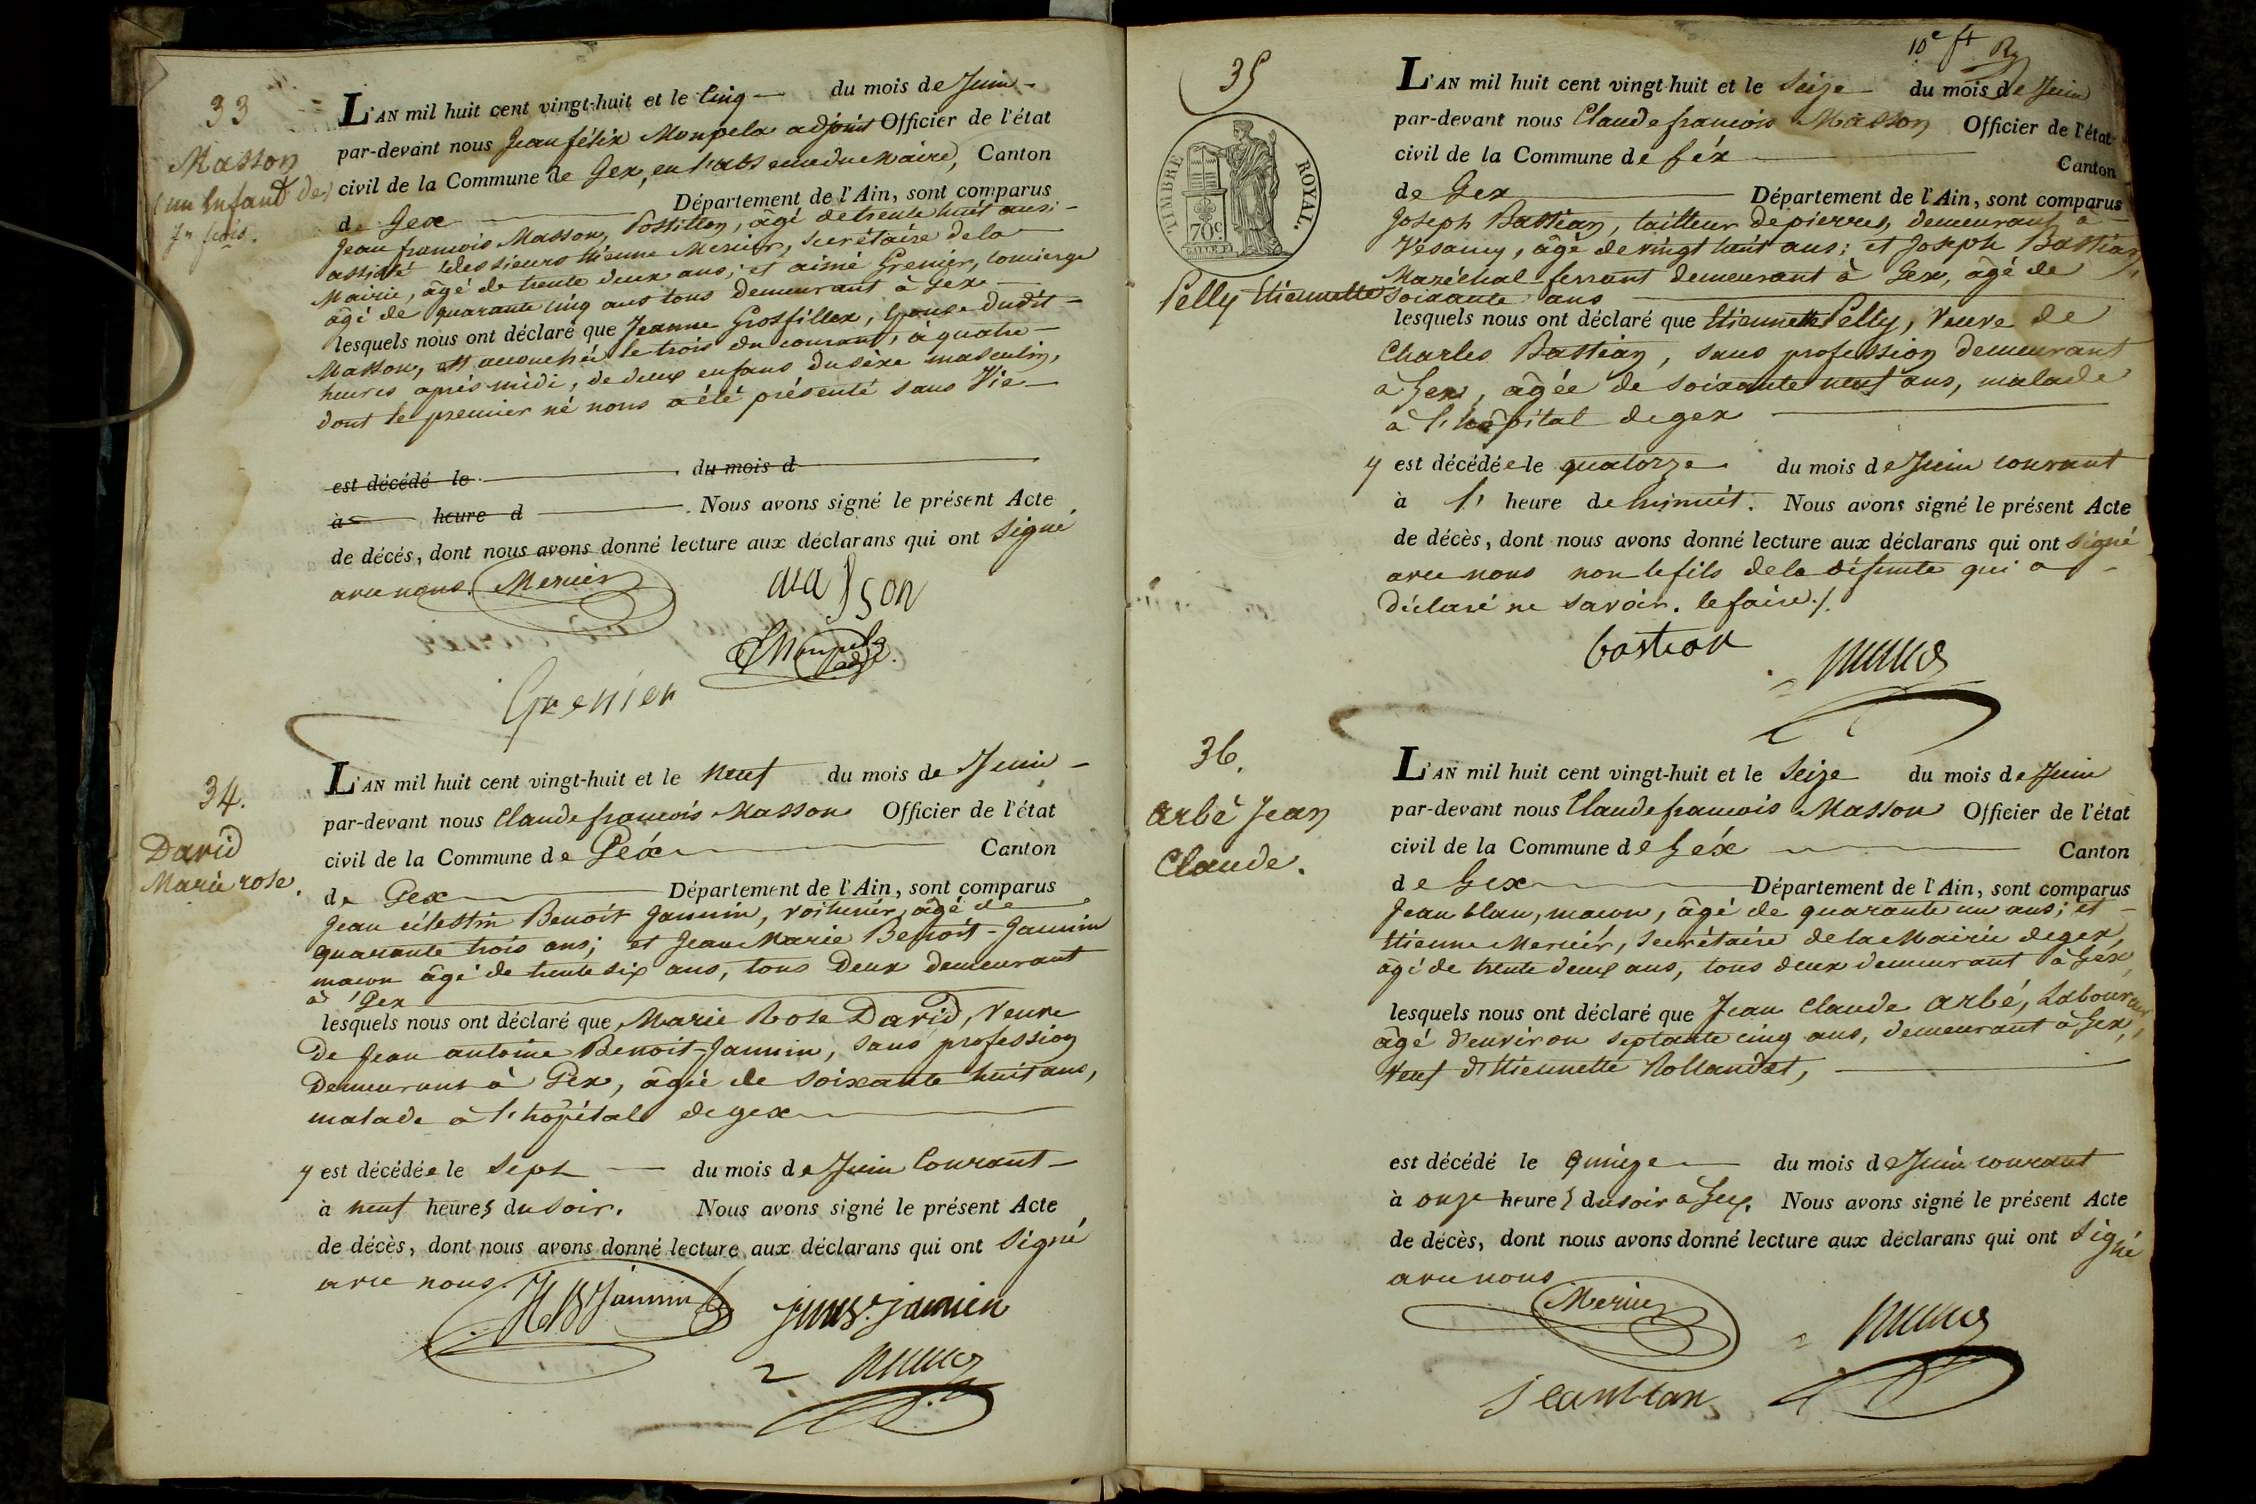 33
Masson
(un Enfant de)
jn fois.
L'AN mil huit cent vingt-huit et le Cinq du mois de Juin
par-devant nous Jean félix Monpela adjoint Officier de l'état
civil de la Commune de Gex, en l'absence du Maire, Canton
de Gex Département de l'Ain, sont comparus
Jean françois Masson, Postillon, âgé de trente huit ans;
assisté des sieurs Etienne Mercier, secrétaire de la
Mairie, âgé de trente deux ans; et aimé Grenier, concierge
âgé de quarante cinq ans tous demeurant à Gex
lesquels nous ont déclaré que Jeanne Grosfillex, Epouse dudit
Masson, est accouchée le trois du courant, à quatre
heures après midi, de deux enfans du sèxe masculin,
dont le premier né nous a été présenté sans Vie
est décédé le du mois d
à heure d Nous avons signé le présent Acte
de décés, dont nous avons donné lecture aux déclarans qui ont signé
avec nous. Mercier
masson
Monpela adjt.
Grenier
34.
David
Marie rose.
L'AN mil huit cent vingt-huit et le neuf du mois de Juin
par-devant nous Claude françois Masson Officier de l'état
civil de la Commune de Géx Canton
de Gex Département de l'Ain, sont comparus
Jean célestin Benoit Jannin, voiturier, âgé de
quarante trois ans; et Jean Marie Benoit-Jannin
maçon âgé de trente six ans, tous Deux demeurant
à Gex
lesquels nous ont déclaré que Marie Rose David, Veuve
De Jean antoine Benoit-Jannin, sans profession
Demeurant à Gex, âgée de soixante huit ans,
malade à l'hôpital de gex
y est décédée le sept du mois de Juin Courant
à neuf heures du soir. Nous avons signé le présent Acte
de décès, dont nous avons donné lecture aux déclarans qui ont signé
avec nous.
Jannin
jannin
10e ft
35
TIMBRE ROYAL.
70c
Pelly Etiennette
L'AN mil huit cent vingt-huit et le Seize du mois de Juin
par-devant nous Claude françois Masson Officier de l'état
civil de la Commune de Géx Canton
de Gex Département de l'Ain, sont comparus
Joseph Bastian, tailleur de pierres, demeurant à
Vesancy, âgé de vingt huit ans; et Joseph Bastian,
Maréchal-ferrant demeurant à Gex, âgé de
soixante ans
lesquels nous ont déclaré que Etiennette Pelly, Veuve de
Charles Bastian, sans profession demeurant
à Gex, âgée de soixante neuf ans, malade
à l'hôpital de gex
y est décédée le quatorze du mois de Juin courant
à l' heure de minuit. Nous avons signé le présent Acte
de décès, dont nous avons donné lecture aux déclarans qui ont signé
avec nous non le fils de la défunte qui a
déclaré ne savoir le faire./.
bastian
36.
Arbé Jean
Claude.
L'AN mil huit cent vingt-huit et le Seize du mois de Juin
par-devant nous Claude françois Masson Officier de l'état
civil de la Commune de Géx Canton
de Gex Département de l'Ain, sont comparus
Jean blan, maçon, âgé de quarante un ans; et
Etienne Mercier, secrétaire de la Mairie de gex,
âgé de trente deux ans, tous deux demeurant à Géx,
lesquels nous ont déclaré que Jean Claude Arbé, Laboureur
âgé d'environ septante cinq ans, demeurant à Gex,
Veuf d'Etiennette Rollandet,
est décédé le quinze du mois de Juin courant
à onze heures du soir à Gex. Nous avons signé le présent Acte
de décès, dont nous avons donné lecture aux déclarans qui ont signé
avec nous
Mercier
jean blan